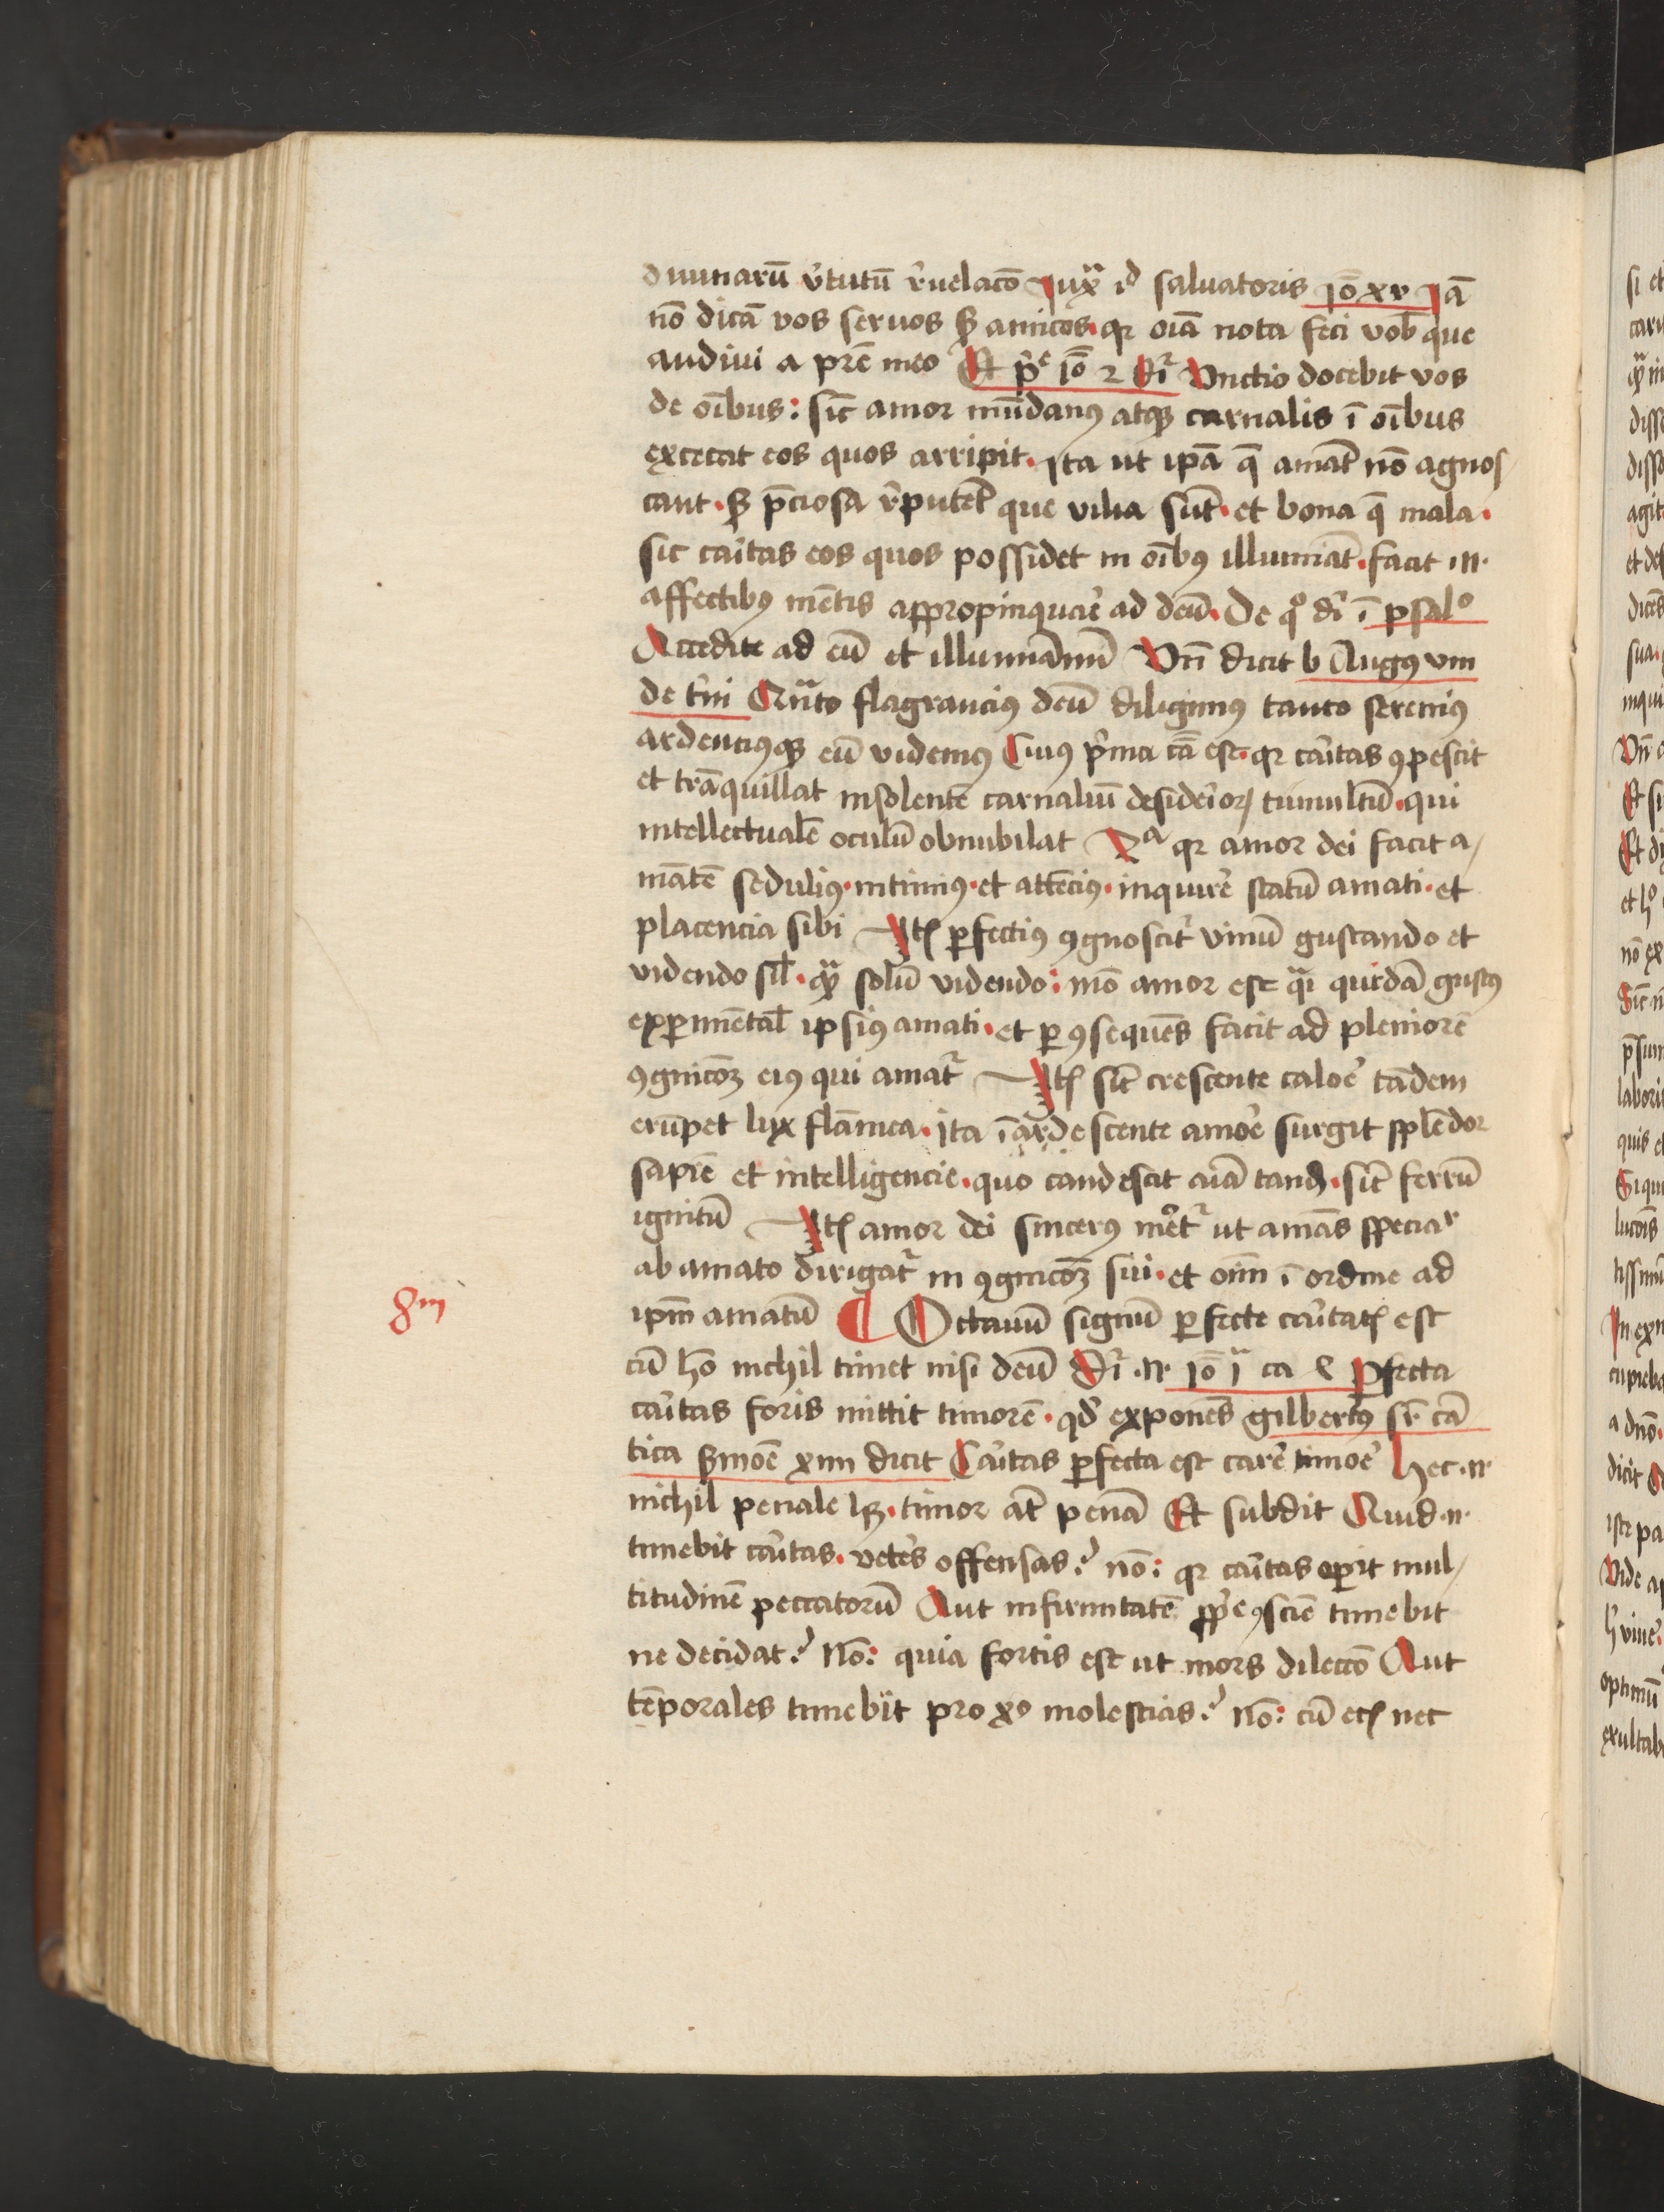 diuinarū v̓tutū r̓uelacō Iuxͣ id saluatoris Io xv Iā
nō dicā vos seruos sꝫ amicos. qꝛ oīa nota feci vob que
audiui a pr̄e meo Et pͥe Io 2 dr̄ Vnctio docebit vos
de oībus: sic̄ amor mūdanꝰ atqꝫ carnalis ī oībus
excecat eos quos arripit. Ita ut ipā q̄ amāt nō agnos
cant. sꝫ p̄ciosa r̓putēt que vilia sūt. et bona q̄ mala.
sic caͥtas eos quos possidet in oībꝰ illumīat. facit .n.
affectibꝰ mētis appropinquar̓ ad deū. De qͦ dr̄ ī psalͦ
Accedite ad eū et illuminamī Vn̄ dicit b Augꝰ viii
de tͥni Quāto flagranciꝰ deū diligimꝰ tanto sereniꝰ
ardenciꝰqꝫ eū videmꝰ Cuiꝰ pͥma cā est. qꝛ caͥtas ꝯpescit
et trāquillat insolentē carnaliū desideͥoꝝ tumultū. qui
intellectualē oculū obnubilat 2ª qꝛ amor dei facit a
mātē seduliꝰ. intimiꝰ. et attēciꝰ. inquirer̓ statū amati. et
placencia sibi Itē ꝑfectiꝰ ꝯgnoscit᷑ vinū gustando et
videndo sil̄. qͣꝫ solū videndo: mō amor est qͣi quidā gustꝰ
exꝑimētal̄ ipsiꝰ amati. et ꝑ ꝯsequēs facit ad pleniorē
ꝯgnicōꝫ eiꝰ qui amat᷑ Itē sic̄ crescente calor̓e tādem
erūpet lux flāmea. ita īardescente amor̓e surgit splēdor
sapiē et intelligencie. quo candescit aīa tandꝫ. sic̄ ferrū
ignitū Itē amor dei sincerꝰ meret᷑ ut amās specia
ab amato dirigat᷑ in ꝯgnicōꝫ sui. et oīm ī ordine ad
ipm̄ amatū Octauū signū ꝑfecte caͥtatꝭ est
8m
cū hō nichil timet nisi deū Dr̄ .n. Io iͣ ca Perfecta
caͥtas foris mittit timorē. qd̓ exponēs gilbertꝰ sr̄ cā
tica sꝫmōe xiiii dicit Caͥtas ꝑfecta est carer̓ timor̓e hec .n.
nichil penale hꝫ. timor at̄ penā Et subdit Quid .n.
timebit caͥtas. veter̓s offensas? nō: qꝛ caͥtas oꝑit mul
titudinē peccatorū Aut infirmitatē ꝓp̓e ꝯsciē timebit
ne decidat? nō: quia fortis est ut mors dilectō Aut
tēporales timebit pro xͦ molestias? nō: cū etꝭ nec